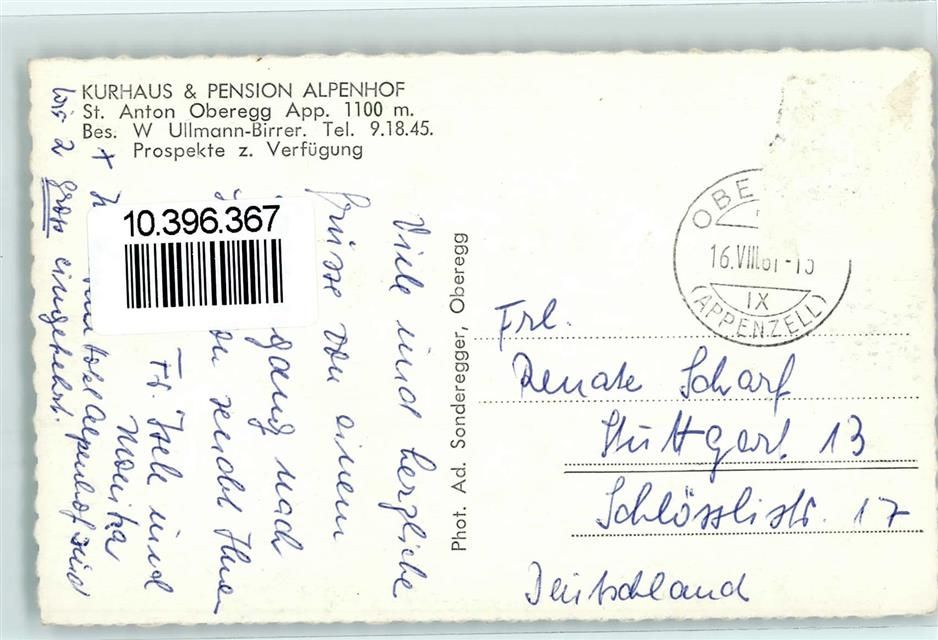 KURHAUS & PENSION ALPENHOF
St. Anton Oberegg App. 1100 m.
Bes. W Ullmann-Birrer. Tel. 9.18.45.
Prospekte z. Verfügung
10.396.367
Viele und herzliche
Grüsse von einem
gang nach
sendet Ihnen
Fr. Isele und
Monika
+
Alpenhof sind
wir 2 gross eingekehrt.
Phot. Ad. Sonderegger, Oberegg
OBE
16.VIII.61-
IX
(APPENZELL)
Frl.
Renate Scharf
Stuttgart 13
Schlösslistr. 17
Deutschland